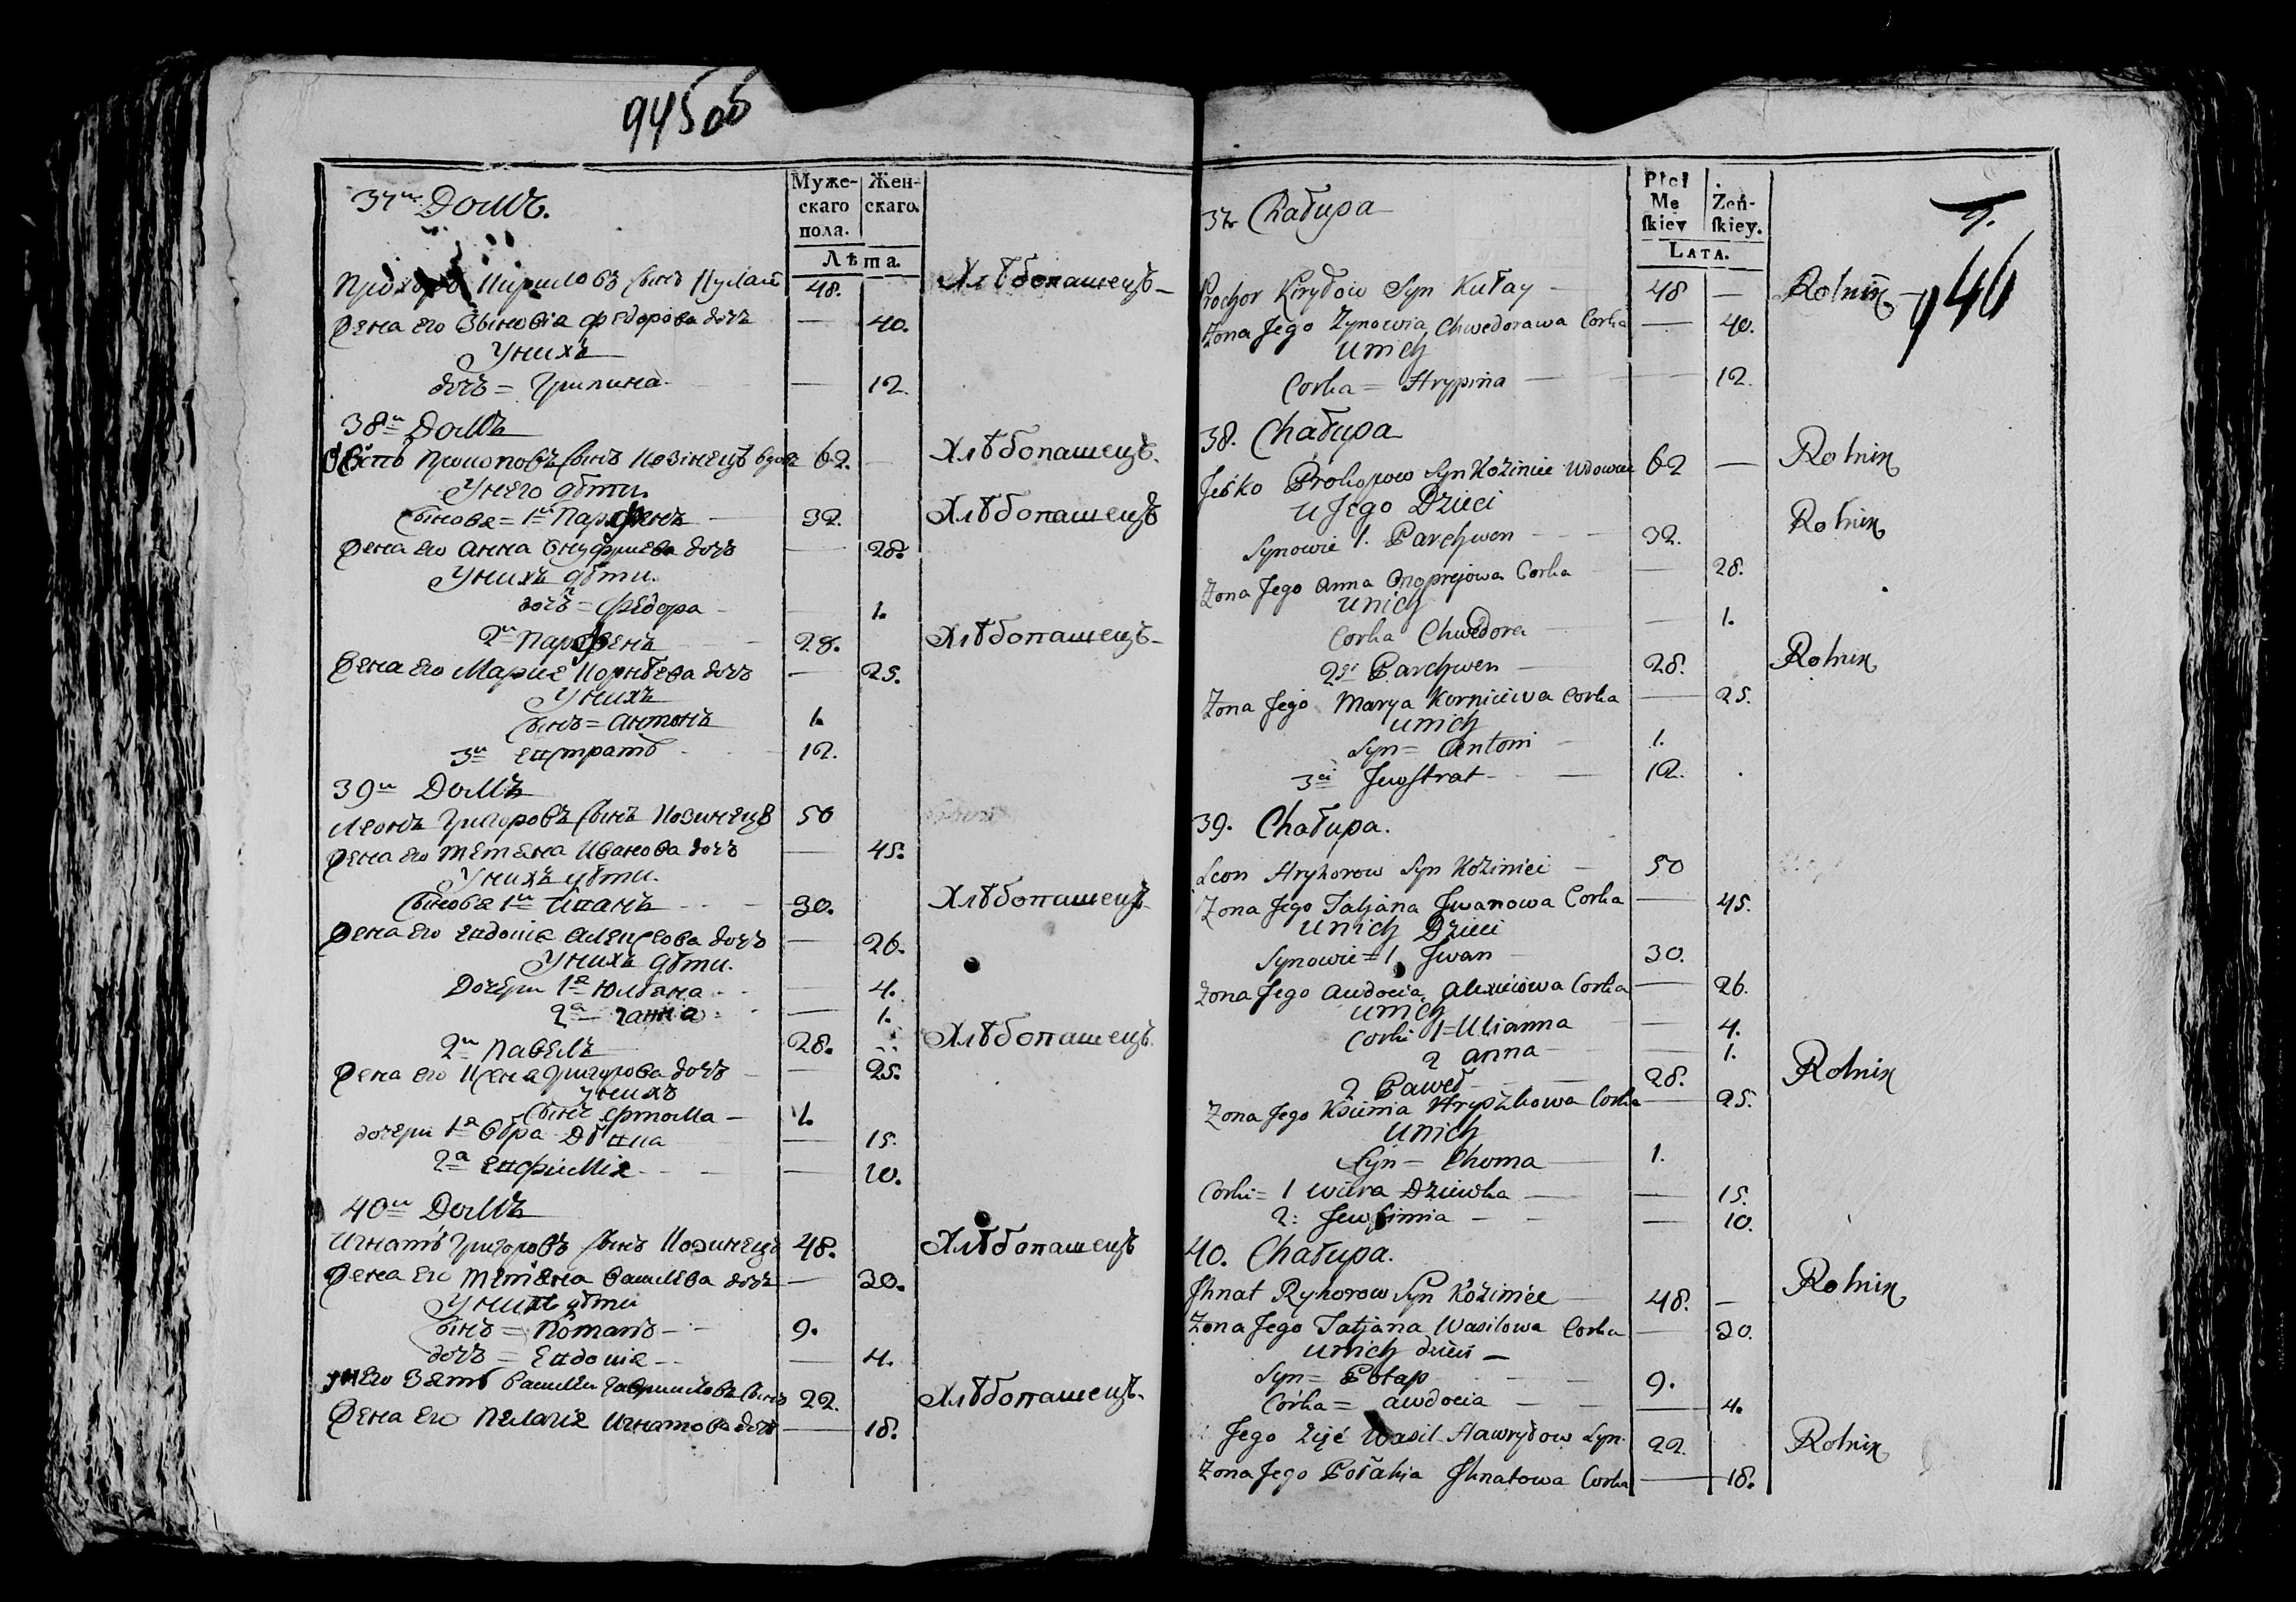 945об
37й Домъ.
Муже-скаго пола.
Жен-скаго.
Лѣта.
Прохоръ Кириловъ сынъ Кулай 48. — Хлѣбопашецъ
Жена его Зѣновія Федорова дочъ — 40.
У нихъ
дочъ = Грипина — 12.
38й Домъ
Прокоповъ сынъ Козінецъ вдовъ 62. — Хлѣбопашецъ.
У него дѣти.
Сынове = 1й Парфенъ — 32. Хлѣбопашецъ
Жена его Анна Онуфриева дочъ — 28.
У нихъ дѣти.
дочъ = Федора — 1.
2й Парфенъ — 28. Хлѣбопашецъ
Жена его Мария Корнѣева дочъ — 25.
У нихъ
Сынъ = Антонъ 1.
3й Евстратъ 12.
39й Домъ
Леонъ Григоровъ сынъ Козинецъ 50
Жена его Тетяна Иванова дочъ — 45.
У нихъ дѣти.
Сынове 1й Иванъ — 30. Хлѣбопашецъ
Жена его Евдокія Алексѣова дочъ — 26.
У нихъ дѣти.
Дочери 1я Юлѣяна — 4.
2я Ганна — 1.
2й Павелъ 28. Хлѣбопашецъ.
Жена его Ксеня Григорова дочъ — 25.
У нихъ
Сынъ Фтома — 1.
дочери 1я Вѣра Дѣвка — 15.
2я Евфимія — 10.
40й Домъ
Игнатъ Григоровъ сынъ Козинецъ 48. Хлѣбопашецъ
Жена его Тетяна Василева дочъ — 30.
У нихъ дѣти
Сынъ = Потапъ — 9.
дочъ = Евдокія — 4.
У него Зять Василий Гавриловъ Сынъ 22. Хлѣбопашецъ.
Жена его Пелагія Игнатова дочъ — 18.
37 Chałupa
Płci Męskiey
Żeńskiey.
Lata.
946
Prochor Kiryłow Syn Kułay — 48 — Rolnik
Zona Jego Zynowia Chwedorawa Corka — 40.
U nich
Corka = Hrypina — 12.
38. Chałupa
Jeśko Prokopow Syn Koziniec Wdowiec 62 — Rolnik
U Jego Dzieci
Synowie 1. Parchwen — 32. Rolnik
Zona Jego Anna Onoprejowa Corka — 28.
U nich
Corka Chwedora — 1.
2gi Parchwen — 28. Rolnik
Zona Jego Marya Kornieiewa Corka — 25.
U nich
Syn = Antoni — 1.
3ci Jewstrat — 12.
39. Chałupa.
Leon Hryhorow Syn Koziniec — 50
Zona Jego Tatjana Jwanowa Corka — 45.
U nich Dzieci
Synowie = 1 Jwan — 30.
Zona Jego Awdocia Alexieiowa Corka — 26.
U nich
Corki 1 = Ulianna — 4.
2 Anna — 1.
2 Paweł — 28. Rolnik
Zona Jego Ksienia Hryszkowa Corka — 25.
U nich
Syn = Choma — 1.
Corki = 1 Wiera Dziewka — 15.
2: Jewfimia — 10.
40. Chałupa.
Jhnat Ryhorow Syn Koziniec — 48. — Rolnik
Zona Jego Tatjana Wasilowa Corka — 30.
U nich dzieci —
Syn = Potap — 9.
Córka = Awdocia — 4.
Jego Zięć Wasil Hawryłow Syn. 22. Rolnik
Zona Jego Połahia Jhnatowa Corka — 18.